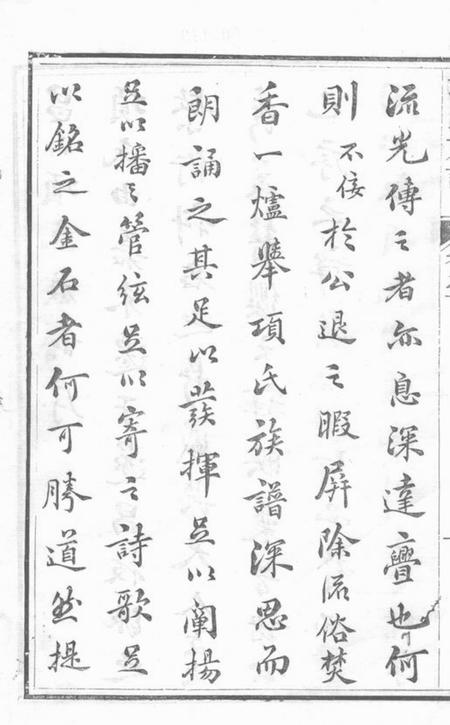 流光傳之者亦息深達亹也何
則不佞於公退之暇屏除流俗焚
香一爐舉項氏族譜深思而
朗誦之其足以發揮足以闡揚
足以播之管弦足以寄之詩歌足
以銘之金石者何可勝道然提